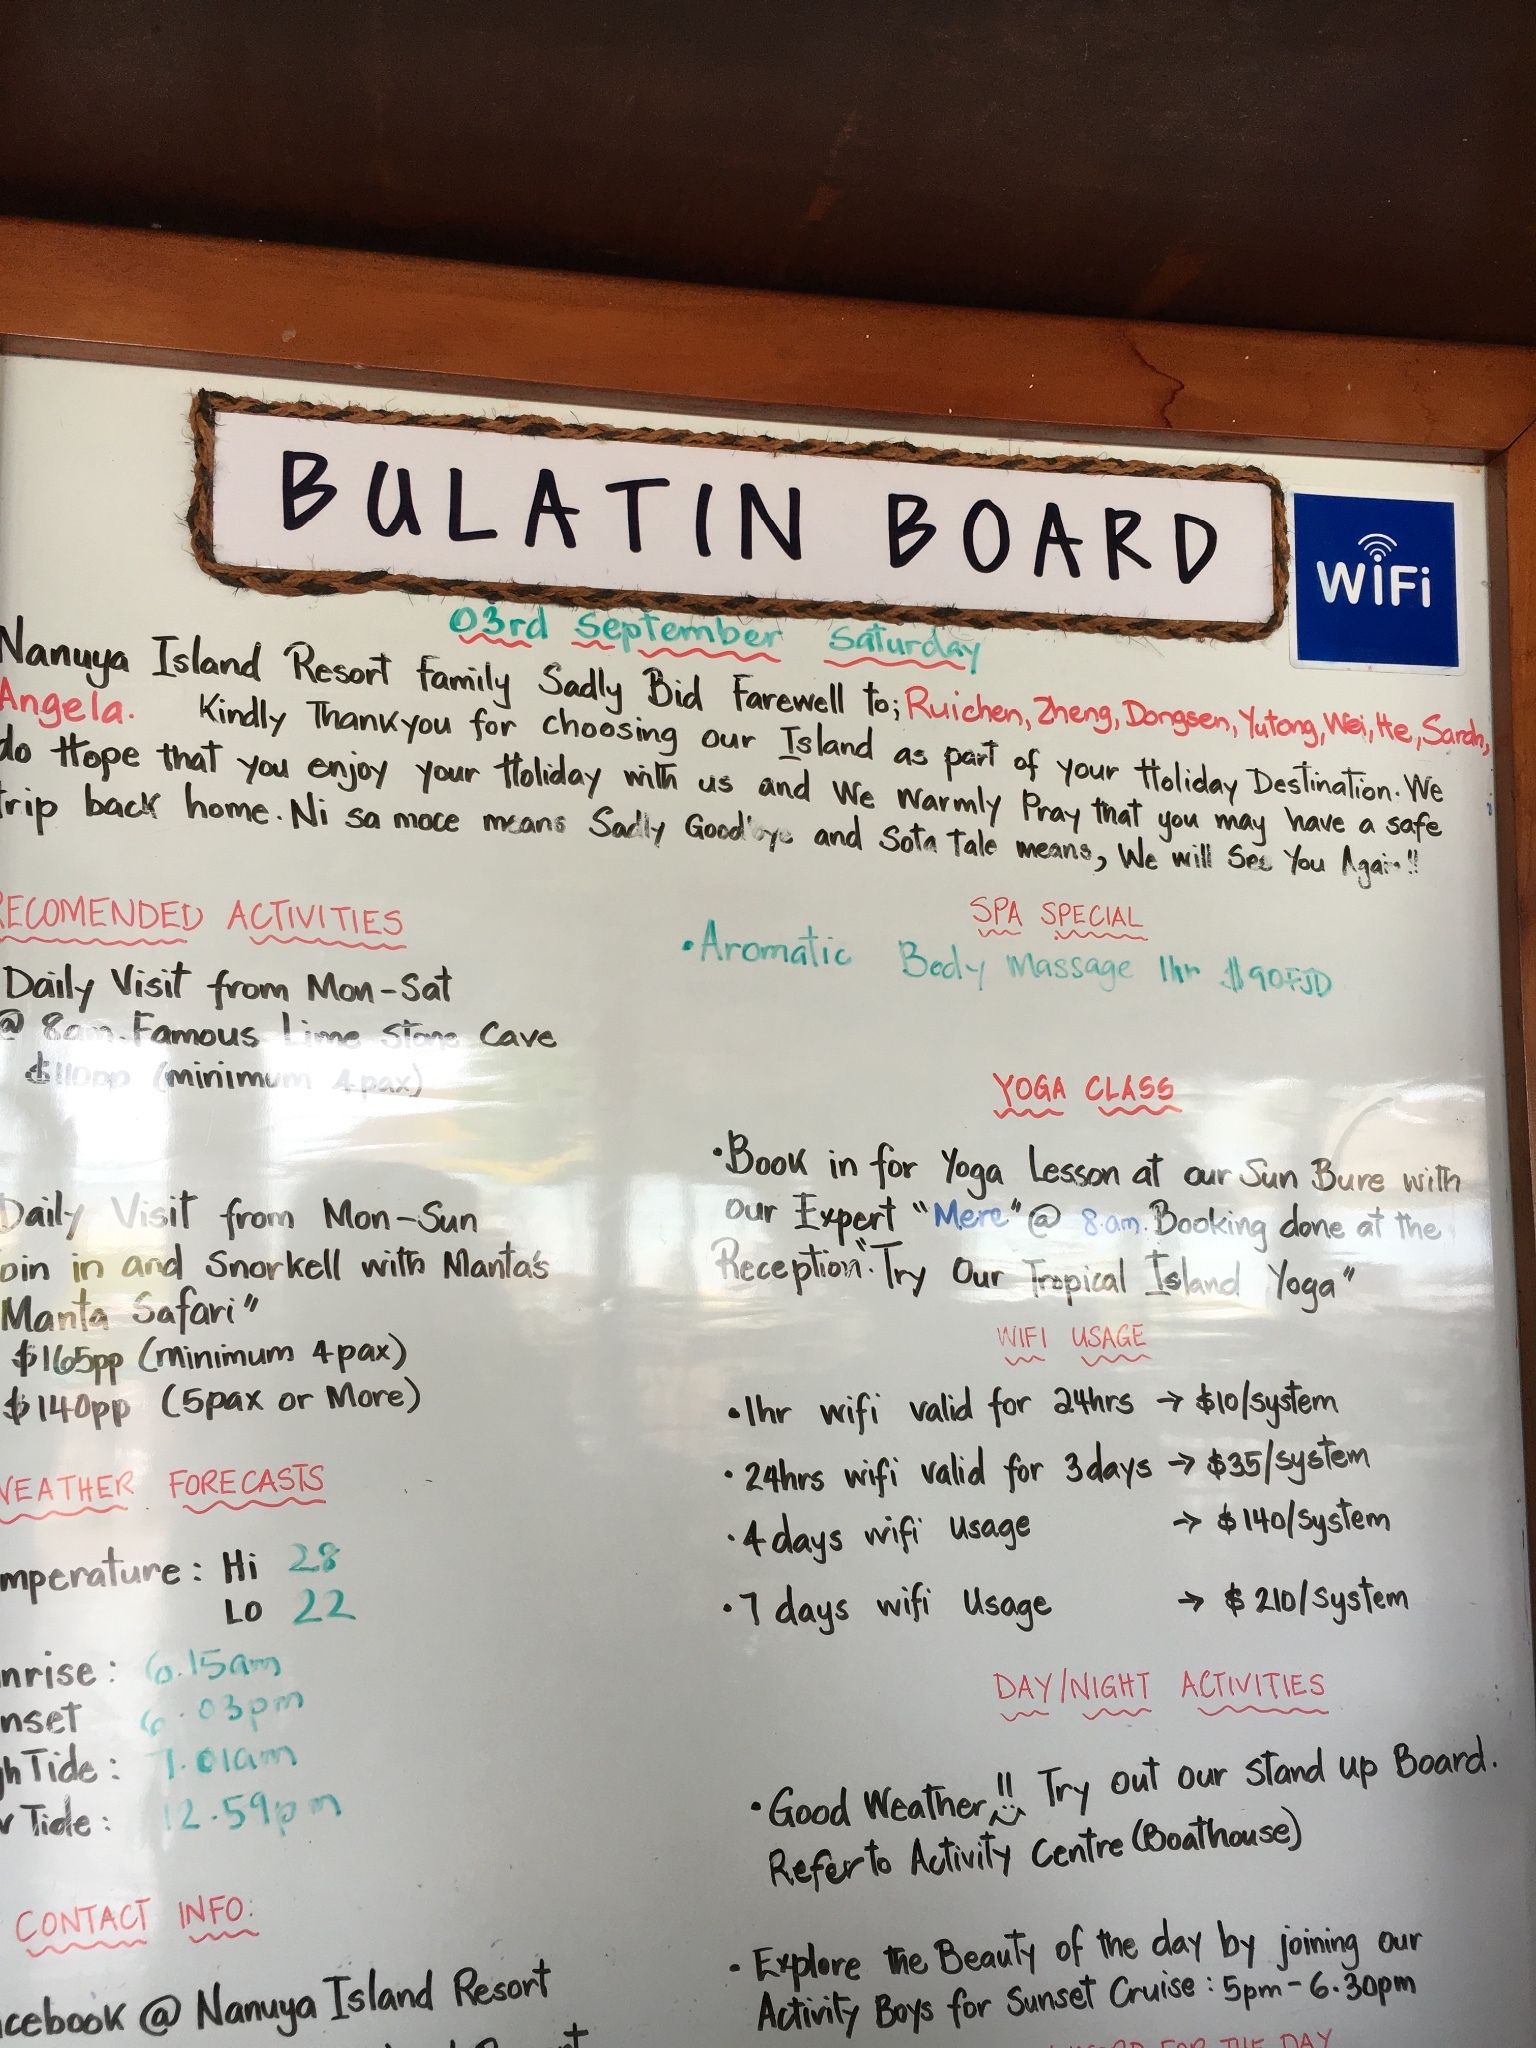 BULATIN BOARD
WiFi
03rd September Saturday
Nanuya Island Resort Family Sadly Bid Farewell to; Ruichen, Zheng, Dongsen, Yutong, Wei, He, Sarah,
Angela. Kindly Thankyou for choosing our Island as part of your Holiday Destination. We
do Hope that you enjoy your Holiday with us and We Warmly Pray that you may have a safe
trip back home. Ni sa moce means Sadly Goodbye and Sota Tale means, We will See You Again!!
RECOMENDED ACTIVITIES
Daily Visit from Mon-Sat
@ 8am. Famous Lime Stone Cave
$110pp (minimum 4 pax)
Daily Visit from Mon-Sun
oin in and Snorkell with Manta's
Manta Safari"
$165pp (minimum 4pax)
$140pp (5pax or More)
WEATHER FORECASTS
mperature: Hi 28
Lo 22
nrise: 6.15am
nset 6.03pm
gh Tide: 7.01am
w Tide: 12.59pm
CONTACT INFO:
acebook @ Nanuya Island Resort
SPA SPECIAL
• Aromatic Body Massage 1hr $90FJD
YOGA CLASS
• Book in for Yoga Lesson at our Sun Bure with
our Expert "Mere" @ 8.am. Booking done at the
Reception. "Try Our Tropical Island Yoga"
WIFI USAGE
• 1hr wifi valid for 24hrs → $10/system
• 24hrs wifi valid for 3days → $35/system
• 4 days wifi Usage → $140/system
• 7 days wifi Usage → $210/system
DAY/NIGHT ACTIVITIES
• Good Weather!! Try out our Stand up Board.
Refer to Activity Centre (Boathouse)
• Explore the Beauty of the day by joining our
Activity Boys for Sunset Cruise: 5pm-6.30pm
FOR THE DAY